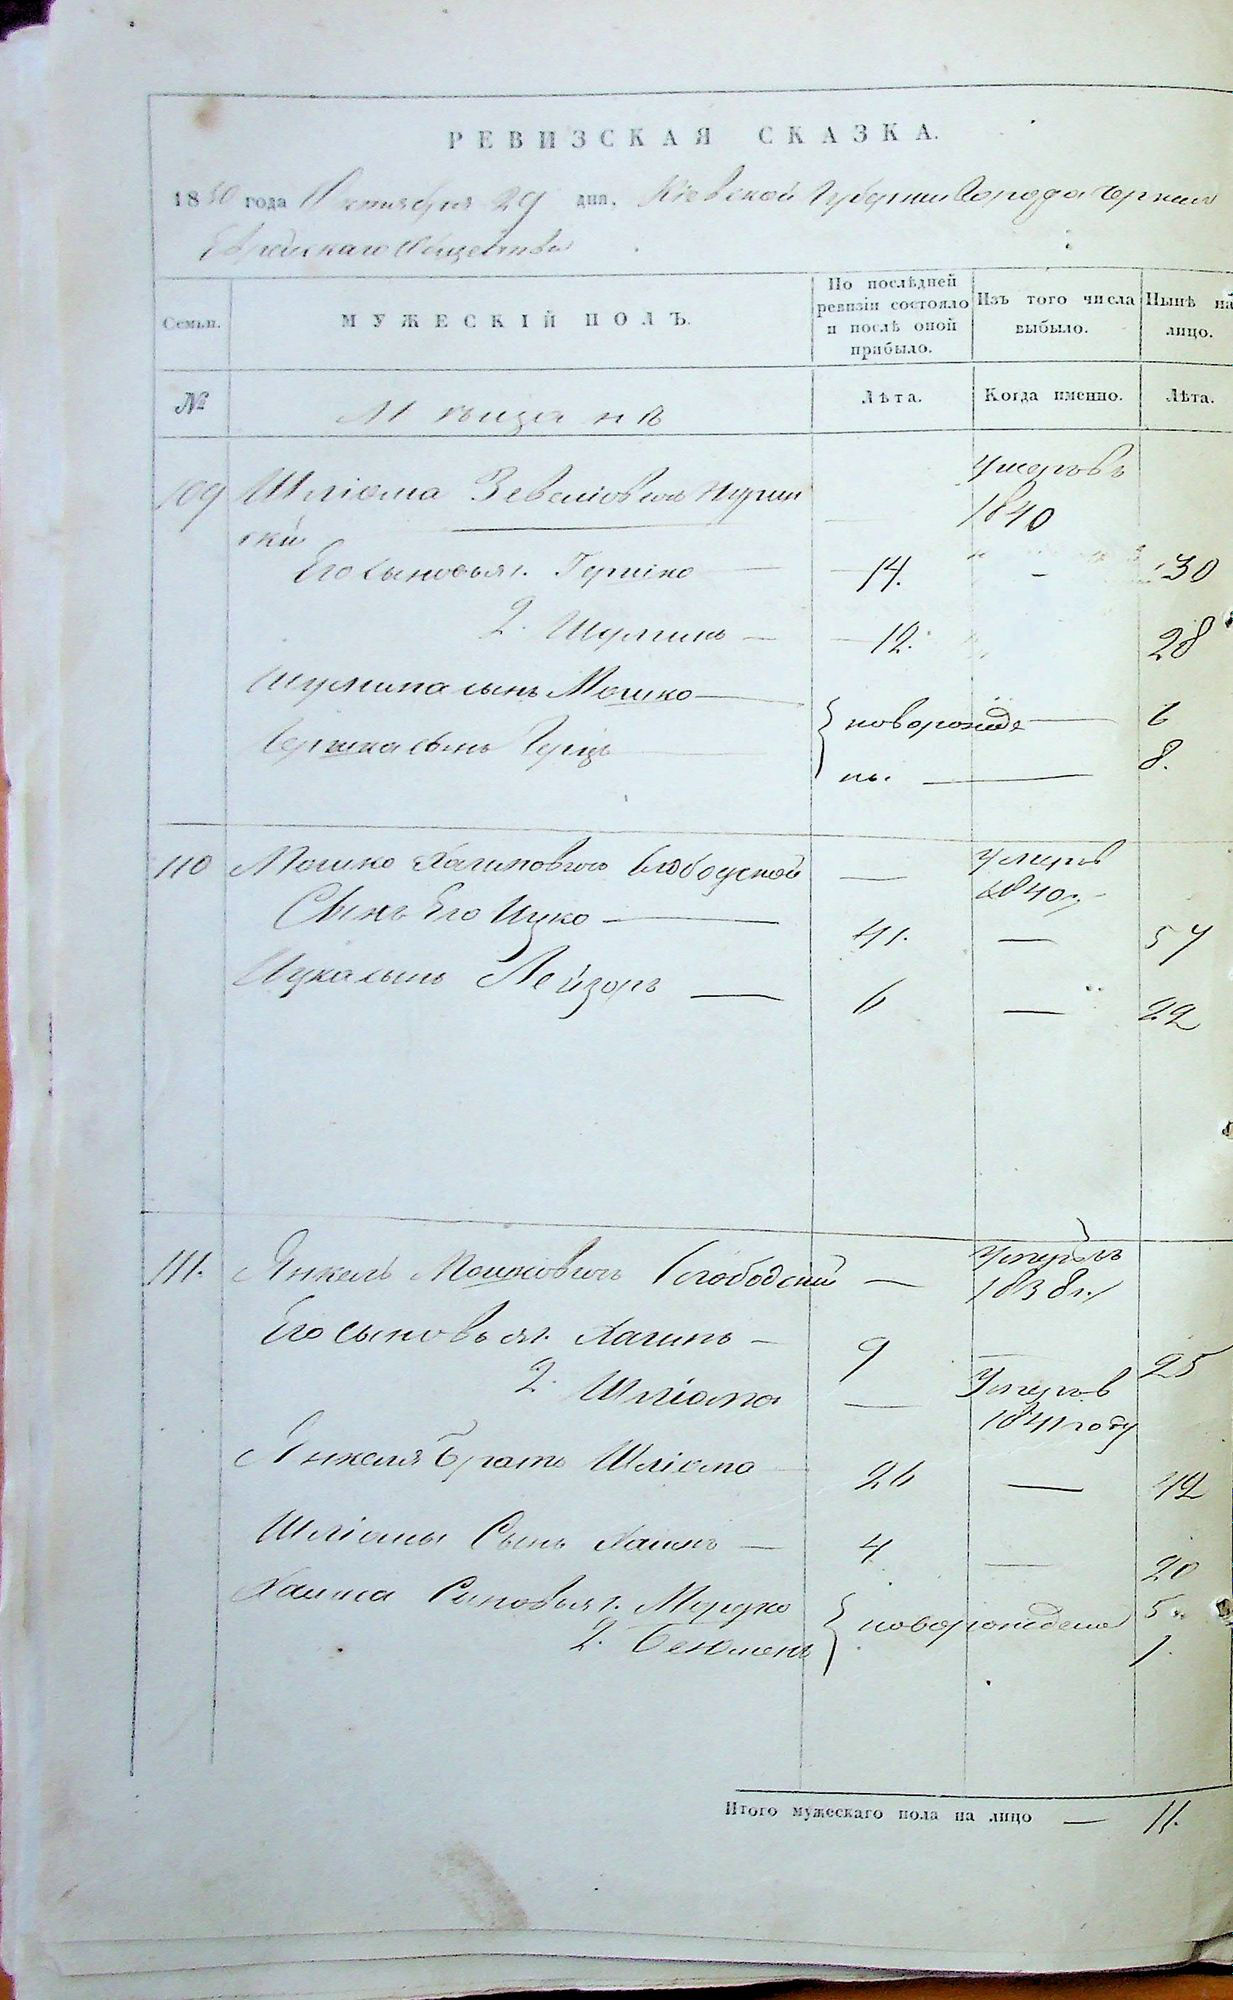 РЕВИЗСКАЯ СКАЗКА.
1850 года Октября 29 дня, Кіевской Губерніи Города
Еврейскаго Общества
Семьи.
МУЖЕСКІЙ ПОЛЪ.
По послѣдней
ревизіи состояло
и послѣ оной
прибыло.
Изъ того числа
выбыло.
Нынѣ на
лицо.
№
Мѣщанѣ
Лѣта.
Когда именно.
Лѣта.
109 Шліома Умеръ въ
1840
Его сыновья 1. Гершко — 14. — 30
2. Шулимъ — 12. 28
Шулима сынъ Мошко — новорожде — 6
Гершка сынъ — ны. — 8.
110 Мошко Хаимовичъ Слободской — Умеръ въ
1840
Сынъ Его Ицко — 41. — 57
Ицка сынъ Лейзоръ — 6 — 22
111. Янкель Мошковичъ Слободскій — Умеръ въ
1838 г.
Его сыновья 1. Хаимъ — 9 — 25
2. Шліома — Умеръ въ
1841 году
Янкеля братъ Шліома — 26 — 42
Шліомы Сынъ Хаимъ — 4 — 20
Хаима Сыновья 1. Мордко новорождены 5
2. 1.
Итого мужескаго пола на лицо — 11.